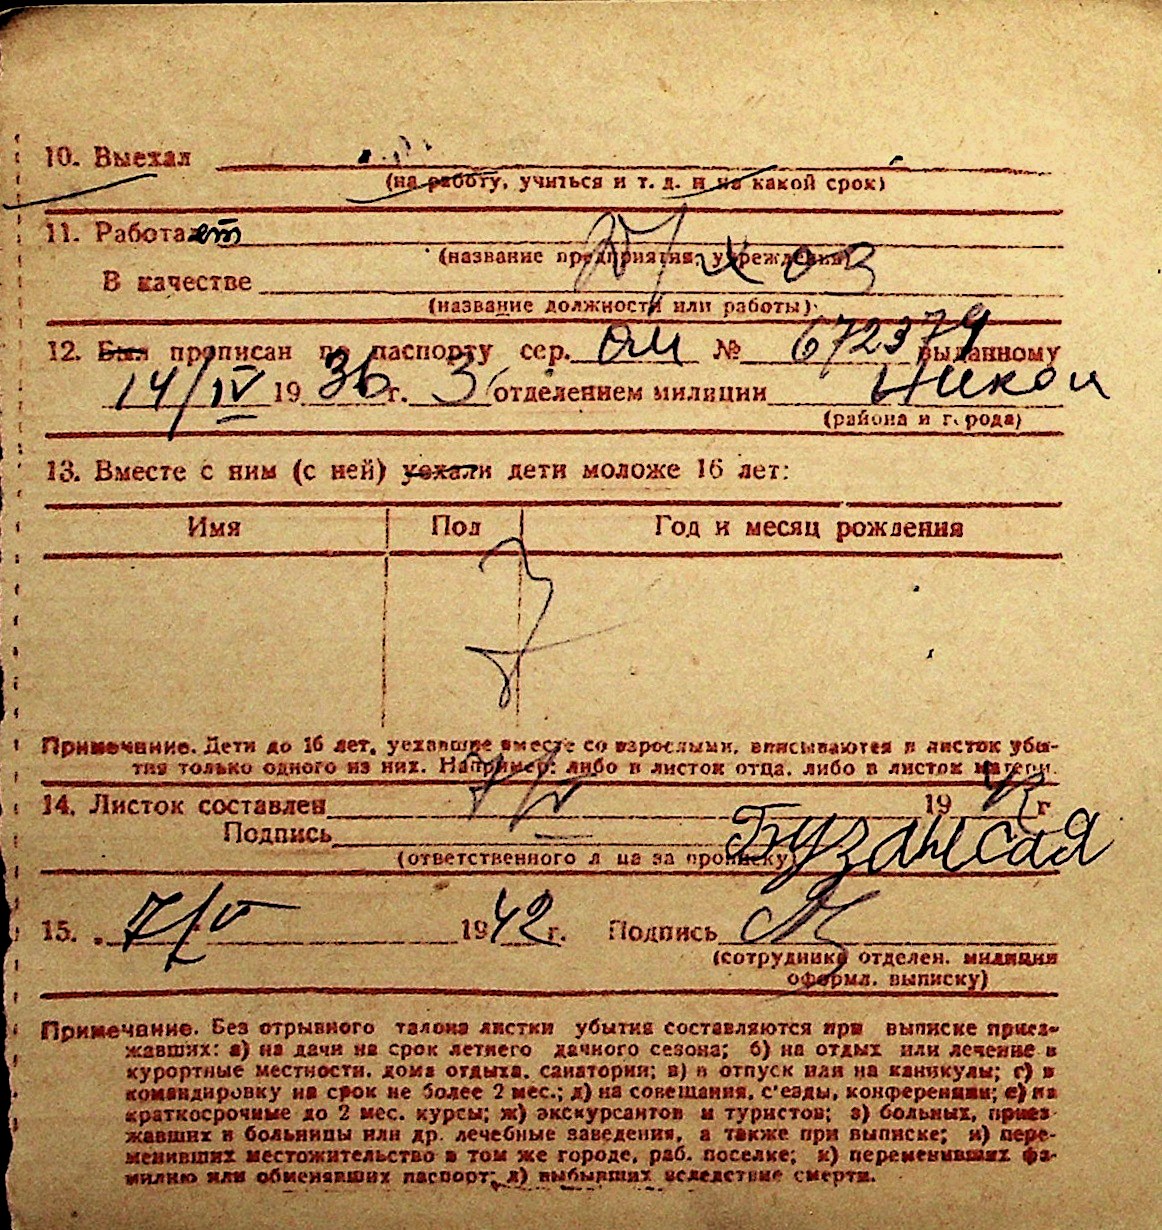 10. Выехал
(на работу, учиться и т. д. и на какой срок)
11. Работает
(название предприятия, учреждения)
В качестве Д/хоз
(название должности или работы)
12. Был прописан по паспорту сер. ОМ № 672379 выданному
14/IV 1936 г. 3 отделением милиции Никол
(района и города)
13. Вместе с ним (с ней) уехали дети моложе 16 лет:
Имя Пол Год и месяц рождения
Примечание. Дети до 16 лет, уехавшие вместе со взрослыми, вписываются в листок убы-
тия только одного из них. Например: либо в листок отца, либо в листок матери.
14. Листок составлен 7/V 1942 г
Подпись
(ответственного лица за прописку)
15. 7/V 1942 г. Подпись
(сотрудника отделен. милиции
оформл. выписку)
Примечание. Без отрывного талона листки убытия составляются при выписке приез-
жавших: а) на дачи на срок летнего дачного сезона; б) на отдых или лечение в
курортные местности, дома отдыха, санатории; в) в отпуск или на каникулы; г) в
командировку на срок не более 2 мес.; д) на совещания, с'езды, конференции; е) на
краткосрочные до 2 мес. курсы; ж) экскурсантов и туристов; з) больных, приез-
жавших в больницы или др. лечебные заведения, а также при выписке; и) пере-
менивших местожительство в том же городе, раб. поселке; к) переменивших фа-
милию или обменявших паспорт; л) выбывших вследствие смерти.